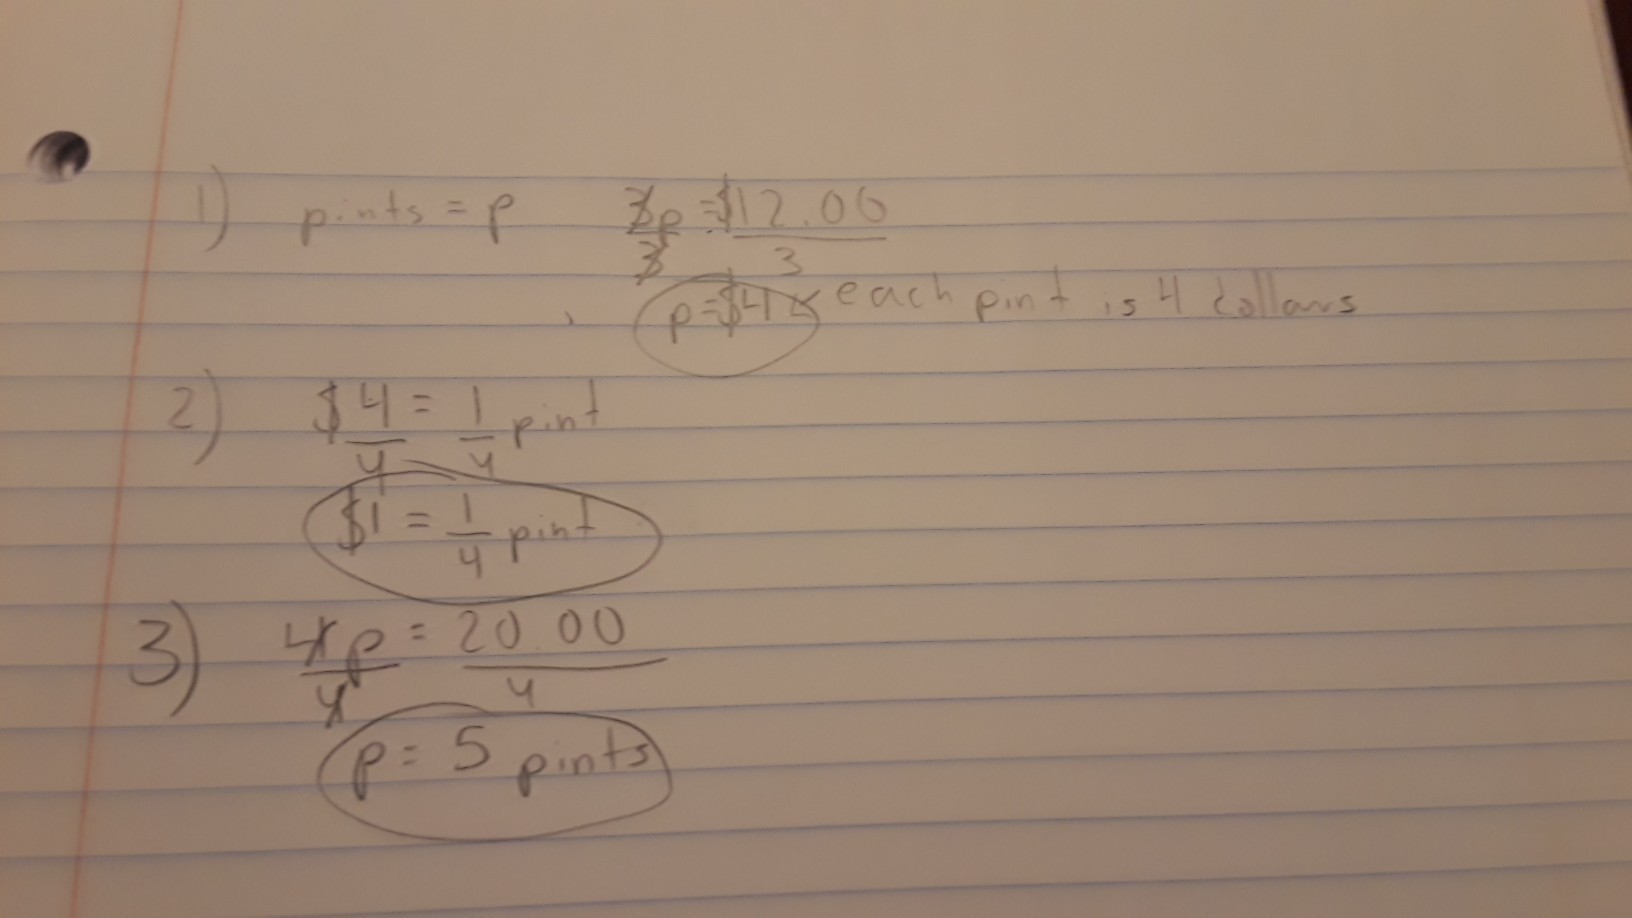 1) pints = p 3p = $12.00
3 3
p = $4 ← each pint is 4 dollars
2) $4 = 1 pint
4 4
$1 = 1/4 pint
3) 4p = 20.00
4 4
p = 5 pints